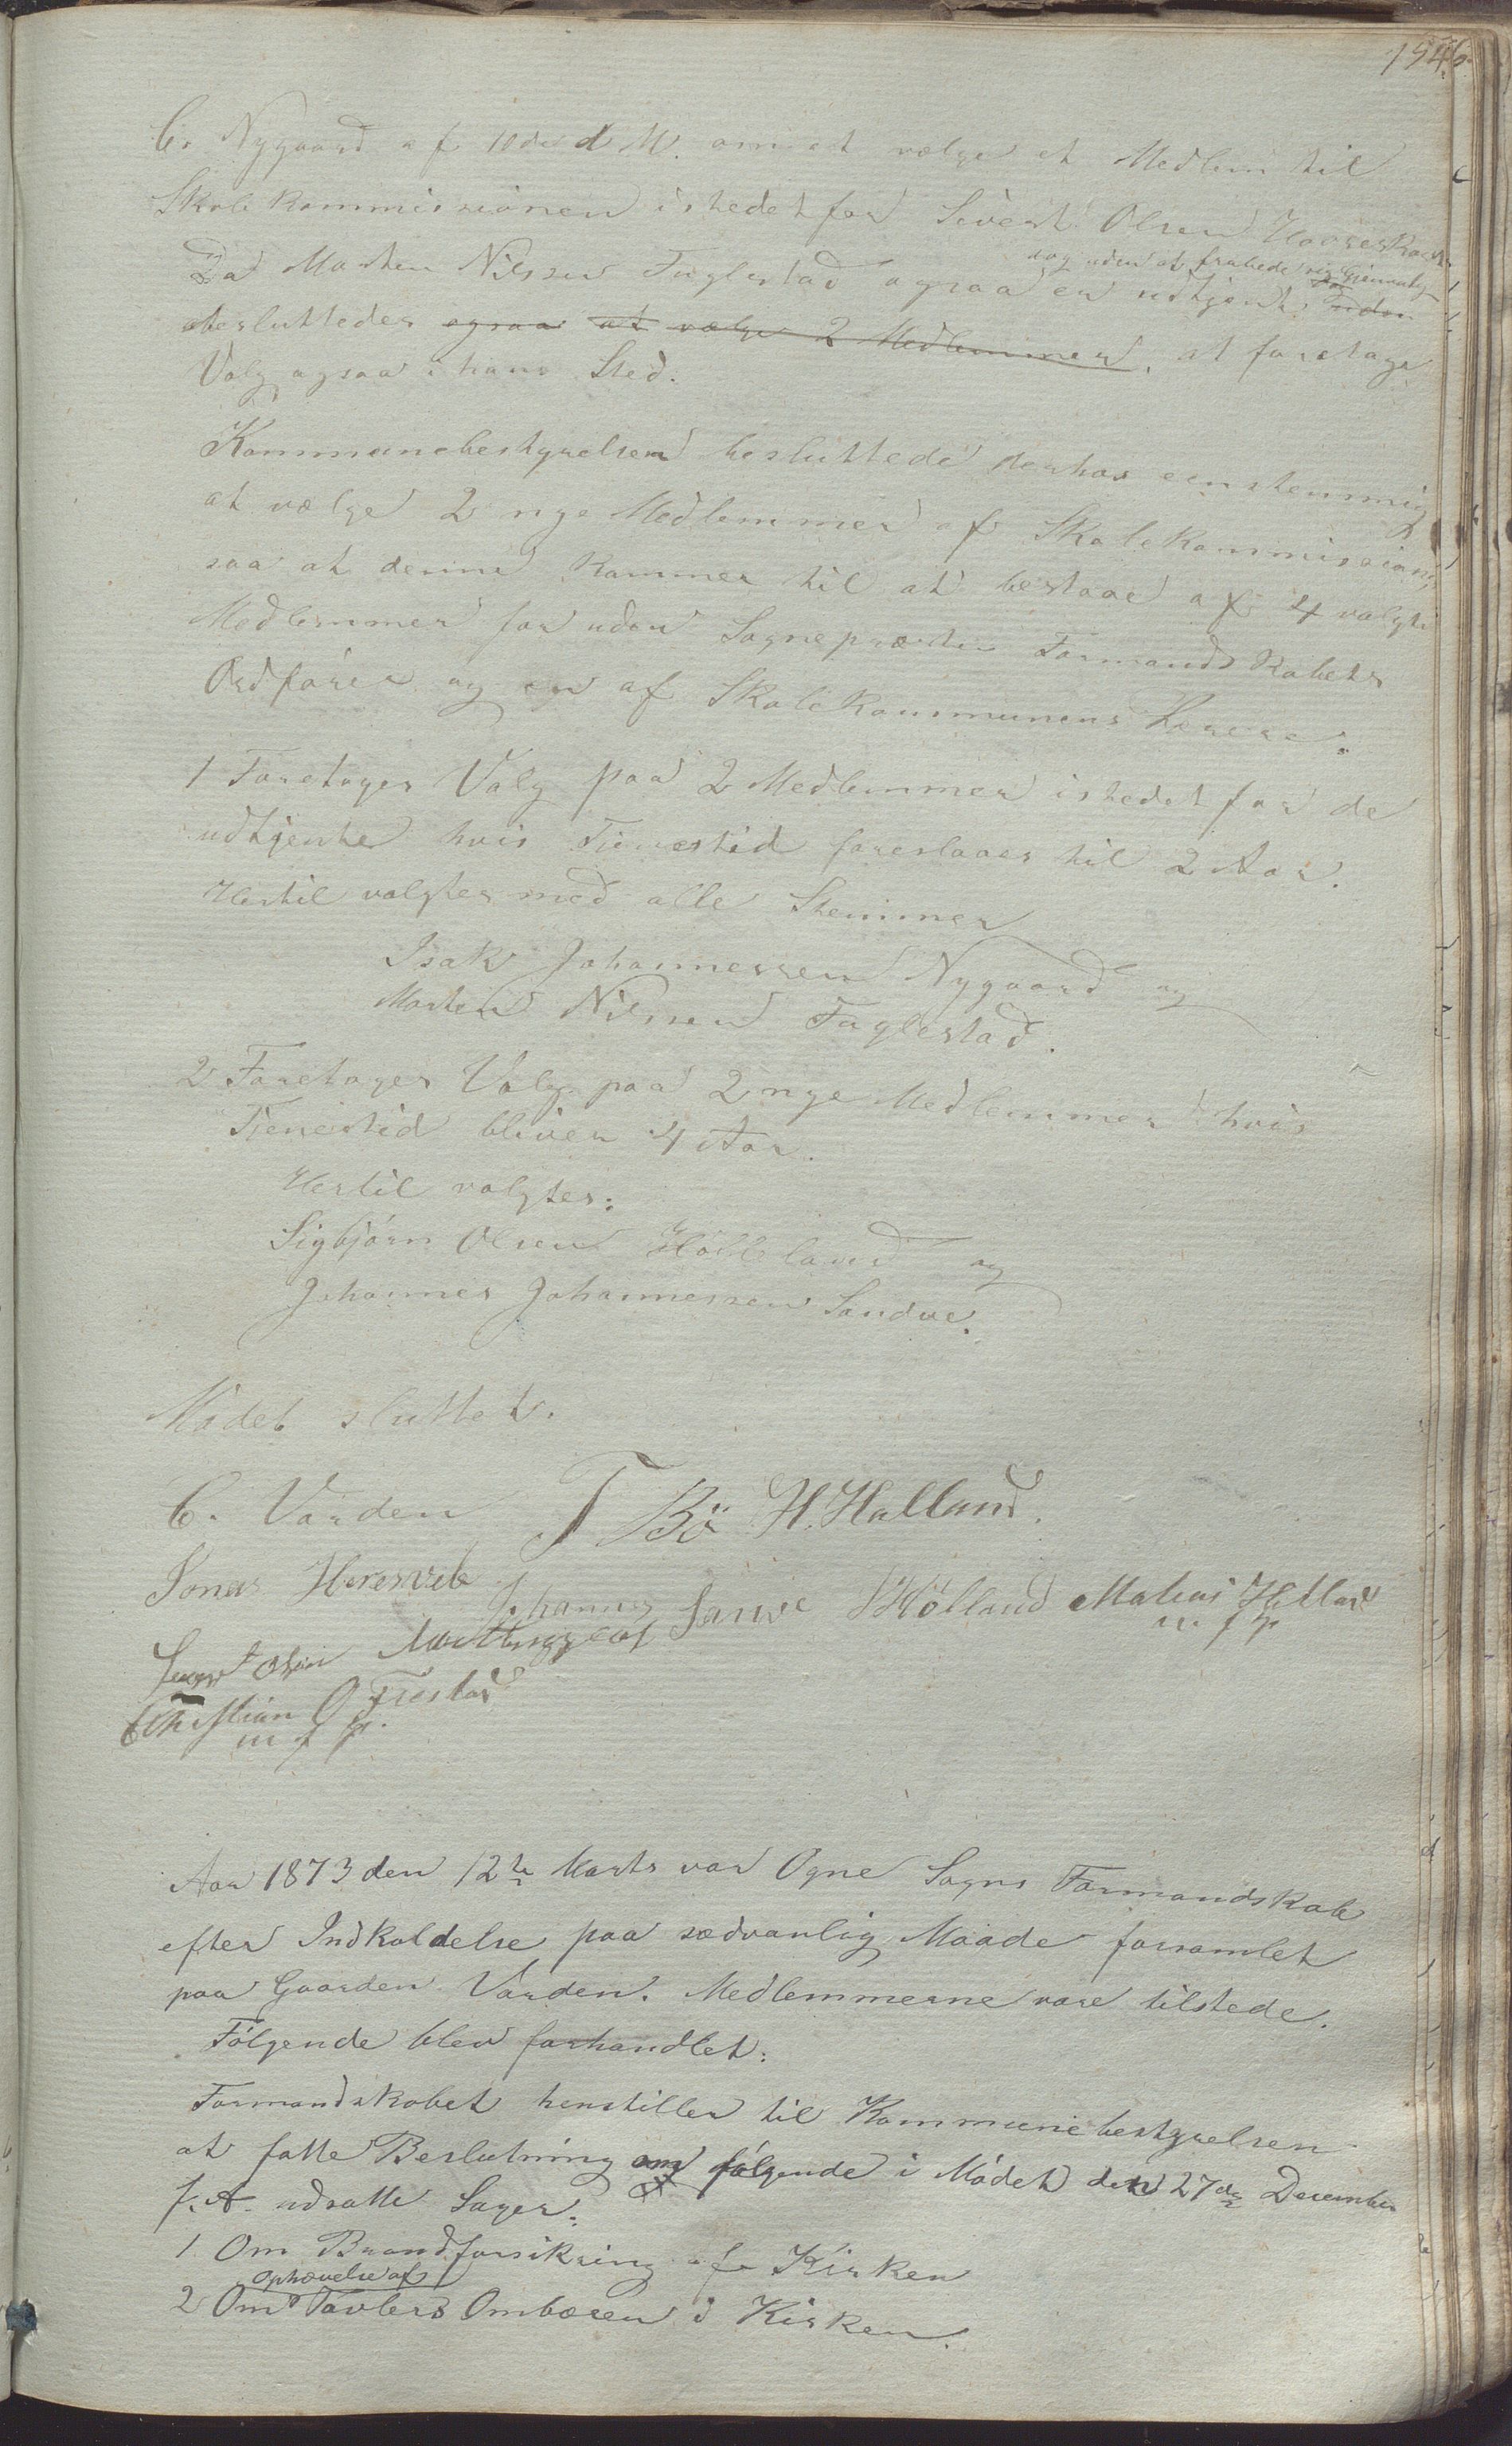 1546
C. Nygaard af 10de d. M. om at vælge et Medlem til
Skolekommissionen istedetfor Sivert Olsen
Da Morten Nilssen Fuglestad ogsaa er udtjent, uden
dog uden at frabede sig Gjenvalg
besluttedes ogsaa at vælge 2 Medlemmer, at foretage
Valg ogsaa i hans Sted.
Kommunebestyrelsen besluttede derhos eenstemmig
at vælge 2 nye Medlemmer af Skolekommissionen,
saa at denne kommer til at bestaae af 4 valgte
Medlemmer foruden Sognepræsten Formandskabets
Ordfører og en af Skolekommunens Lærere.
1 Foretoges Valg paa 2 Medlemmer istedetfor de
udtjente hvis Tjenestid foreslaaes til 2 Aar.
Hertil valgtes med alle Stemmer
Isak Johannessen Nygaard og
Morten Nilssen Fuglestad.
2 Foretoges Valg paa 2 nye Medlemmer hvis
Tienestid bliver 4 Aar.
Hertil valgtes:
Sigbjørn Olsen Hölland og
Johannes Johannessen Sandve.
Mødet sluttet.
C. Varden T Bö H. Halland.
Jonas Herresvele Johannes Sanve Hölland Matias Hetland
m. f. P.
Olsen
Christian O Tiestad
m f P.
Aar 1873 den 12te Marts var Ogne Sogns Formandskab
efter Indkaldelse paa sædvanlig Maade forsamlet
paa Gaarden Varden. Medlemmerne vare tilstede.
Følgende blev forhandlet:
Formandskabet henstiller til Kommunebestyrelsen
at fatte Beslutning om følgende i Mödet den 27de December
f. A. udsatte Sager:
1 Om Brandforsikring af Kirken
ophævelse af
2 Om Tavlers Ombæren i Kirken.